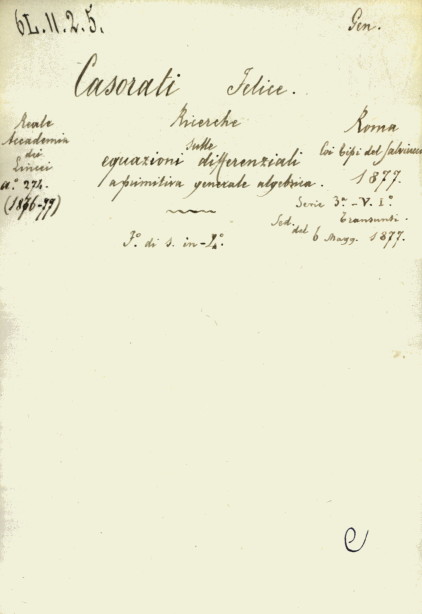 6L.11.2.5.
Gen.
Casorati Felice.
Reale
Accademia
dei
Lincei
a.° 274.
(1876-77)
Ricerche
sulle
equazioni differenziali
a primitiva generale algebrica.
F.° di s. in-4°.
Roma
coi Tipi del Salviucci
1877.
Serie 3ª - V. I°
Transunti.
Sed. del 6 Magg. 1877.
e